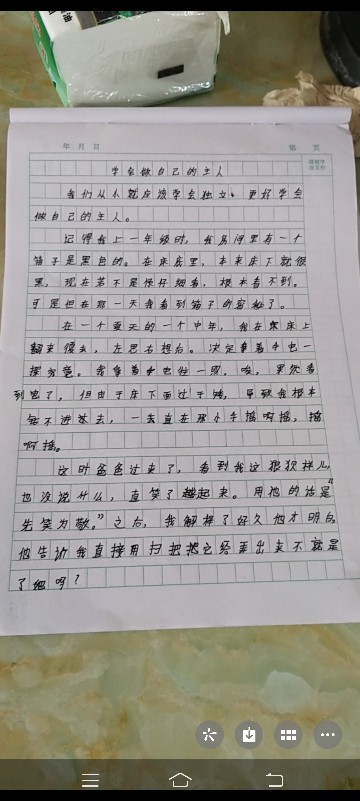 年 月 日
第 页
学会做自己的主人
我们从小就应该学会独立。更好学会
做自己的主人。
记得我上一年级时，我房间里有一个
箱子是黑色的。在床底里，本来床下就很
黑，现在若不是仔仔细看，根本看不到。
可是但在那一天我看到箱子的
在一个夏天的一个中午，我在床上
翻来覆去，左思右想后。决定拿着
到它了，但由于床下面过于
够不进去，一直在那个手摇啊摇，摇
啊摇。
这时爸爸过来了，看到我这狼狈样儿，
也没说什么，直笑了起来。用他的话是“
先笑为敬。”之后，我解释了好久他才明白，
他告诉我直接用扫把把它给弄出来不就是
了